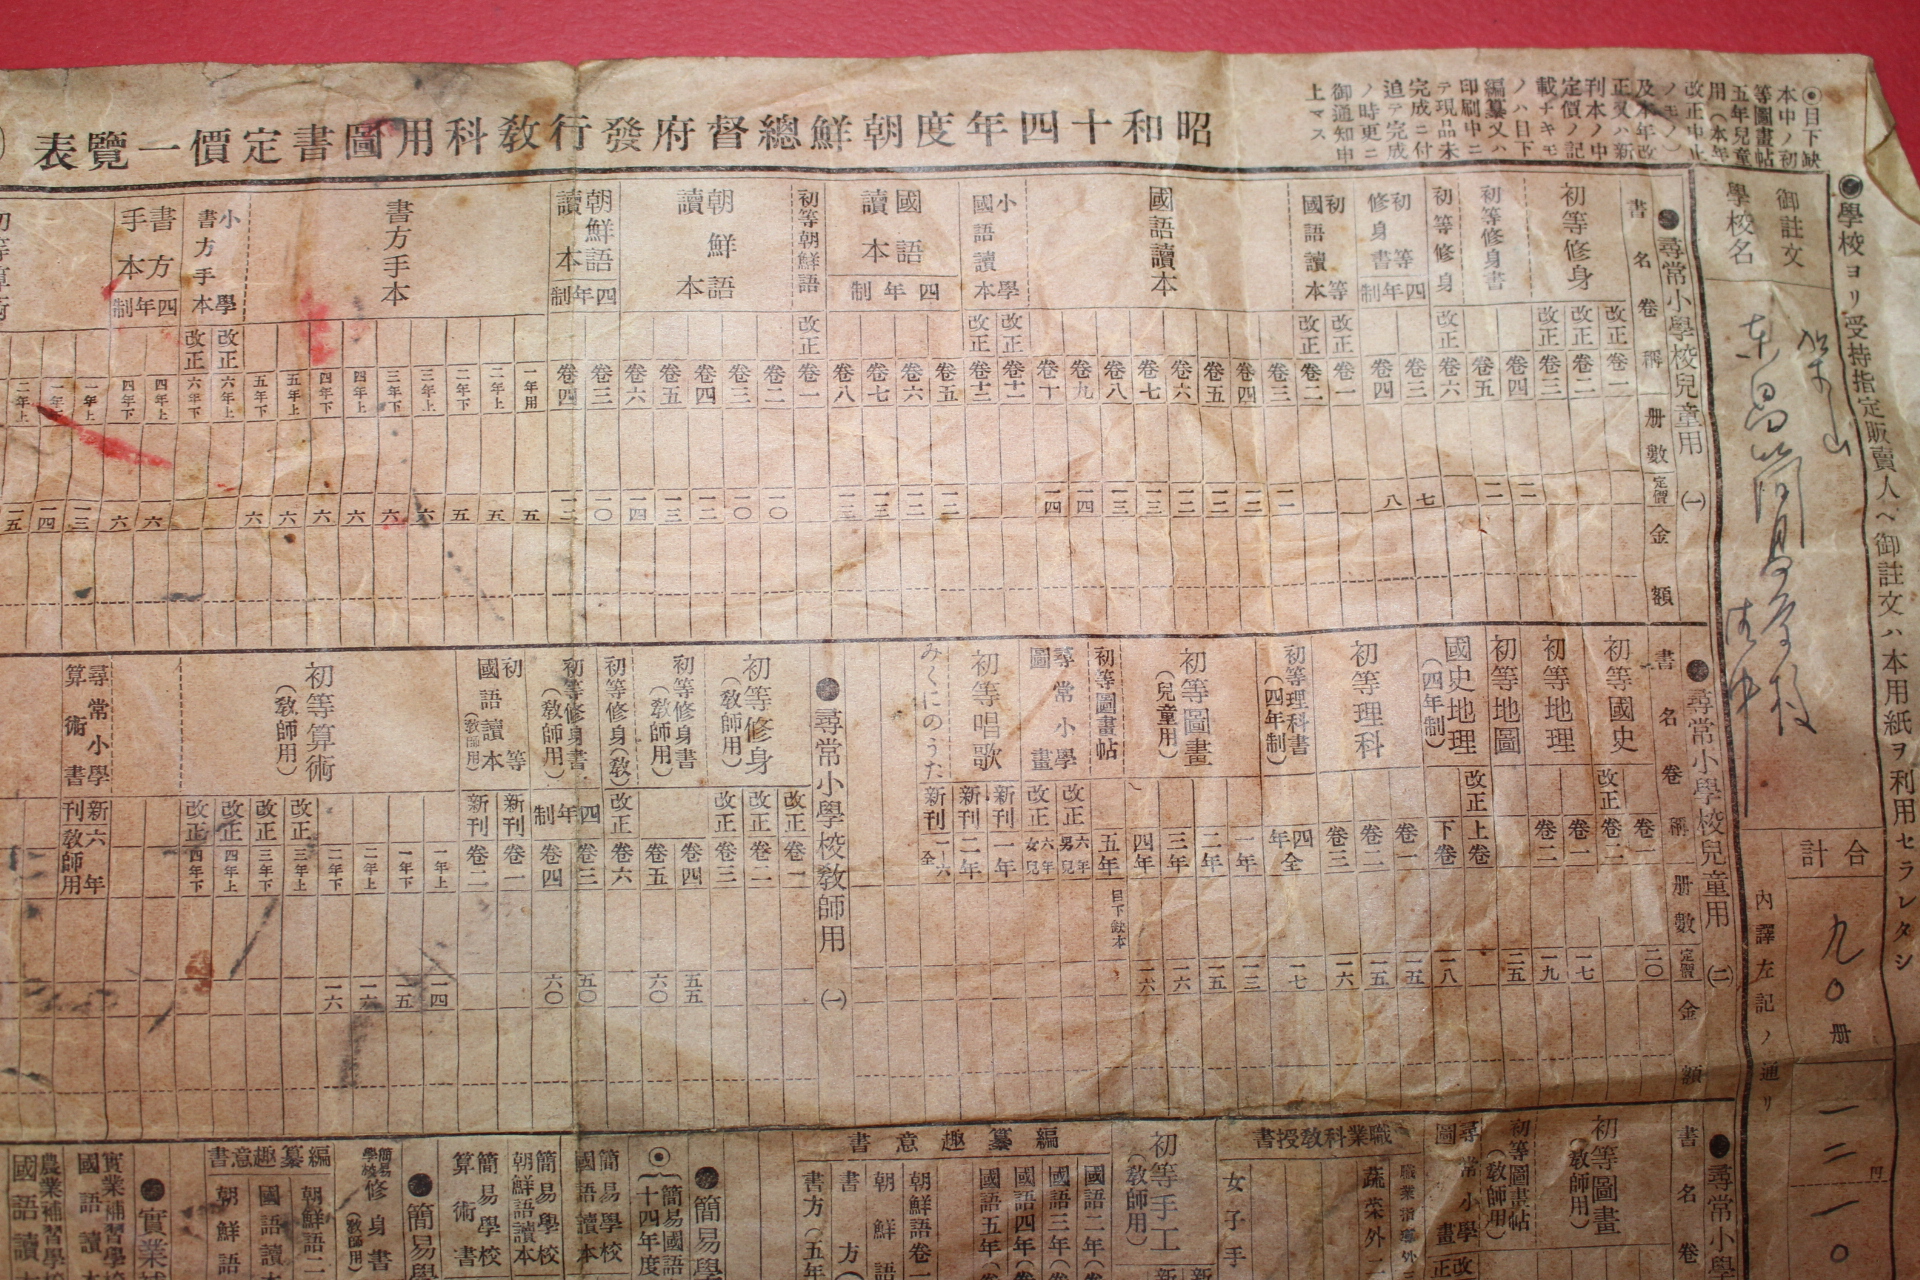 昭和十四年度朝鮮總督府發行教科用圖書定價一覽表
◉目下缺
本中ノ初
等圖畫帖
五年兒童
用(本年
改正中止
ノモノ)
及本年改
正又ハ新
刊本ノ中
定價ノ記
載ナキモ
ノハ目下
編纂又ハ
印刷中ニ
テ現品未
完成ニ付
追テ完成
ノ時更ニ
御通知申
上マス
◉學校ヨリ受持指定販賣人ヘ御註文ハ本用紙ヲ利用セラレタシ
御註文
學校名
合計
九〇册
一二円一〇
內譯左記ノ通リ
●尋常小學校兒童用 (一)
書名 卷稱 册數 定價 金額
初等修身 改正 卷一
改正 卷二
改正 卷三
初等修身書 卷四 一二
卷五 一二
初等修身 改正 卷六
初等修身書 四年制 卷三 七
卷四 八
初等國語讀本 改正 卷一
改正 卷二
國語讀本 卷三
卷四 一三
卷五
卷六
卷七 一三
卷八 一三
卷九 一四
卷十 一四
小學國語讀本 改正 卷十一
改正 卷十二
國語讀本 四年制 卷五 一二
卷六
卷七 一三
卷八 一三
初等朝鮮語 改正 卷一
朝鮮語讀本 卷二 一〇
卷三 一〇
卷四 一二
卷五 一三
卷六 一四
朝鮮語讀本 四年制 卷三 一〇
卷四 一二
書方手本 一年用 五
二年上 五
二年下 五
三年上 六
三年下 六
四年上 六
四年下 六
五年上 六
五年下 六
小學書方手本 改正 六年上
改正 六年下
書方手本 四年制 四年上 六
四年下 六
初等算術 一年上 一三
一年下 一四
二年上 一五
●尋常小學校兒童用 (二)
書名 卷稱 册數 定價 金額
初等國史 卷一 二〇
改正 卷二
初等地理 卷一 一七
卷二 一九
初等地圖 二五
國史地理 (四年制) 改正 上卷
下卷 一八
初等理科 卷一 一五
卷二 一五
卷三 一六
初等理科書 (四年制) 四年全 一七
初等圖畫 (兒童用) 一年 一三
二年 一五
三年 一六
四年 一六
初等圖畫帖 五年 目下缺本
尋常小學圖畫 改正 六年男兒
改正 六年女兒
初等唱歌 新刊 一年
新刊 二年
みくにのうた 新刊 一—六全
●尋常小學校教師用 (一)
初等修身 (教師用) 改正 卷一
改正 卷二
改正 卷三
初等修身書 (教師用) 卷四 五五
卷五 六〇
初等修身(教) 改正 卷六
初等修身書 (教師用) 四年制 卷三 五〇
卷四 六〇
初等國語讀本 (教師用) 新刊 卷一
新刊 卷二
初等算術 (教師用) 一年上 一四
一年下 一五
二年上 一六
二年下 一六
改正 三年上
改正 三年下
改正 四年上
改正 四年下
尋常小學算術書 新刊 六年教師用
●尋常小
書名 卷
初等圖畫 (教師用)
初等圖畫帖 (教師用)
尋常小學圖畫 改正
職業科教授書
職業指導外三
蔬菜外二
女子手
初等手工 (教師用)
編纂趣意書
國語二年
國語三年
國語四年
國語五年
朝鮮語卷一
朝鮮語
書方
書方(五年
●簡易學
◉(簡易國語
十四年度
簡易學校國語讀本
簡易學校朝鮮語讀本
簡易學校算術書
●簡易學
簡易學校修身書 (教師用)
編纂趣意書
朝鮮語二
國語讀
朝鮮語
●實業補
實業補習學校國語讀
農業補習學校國語讀